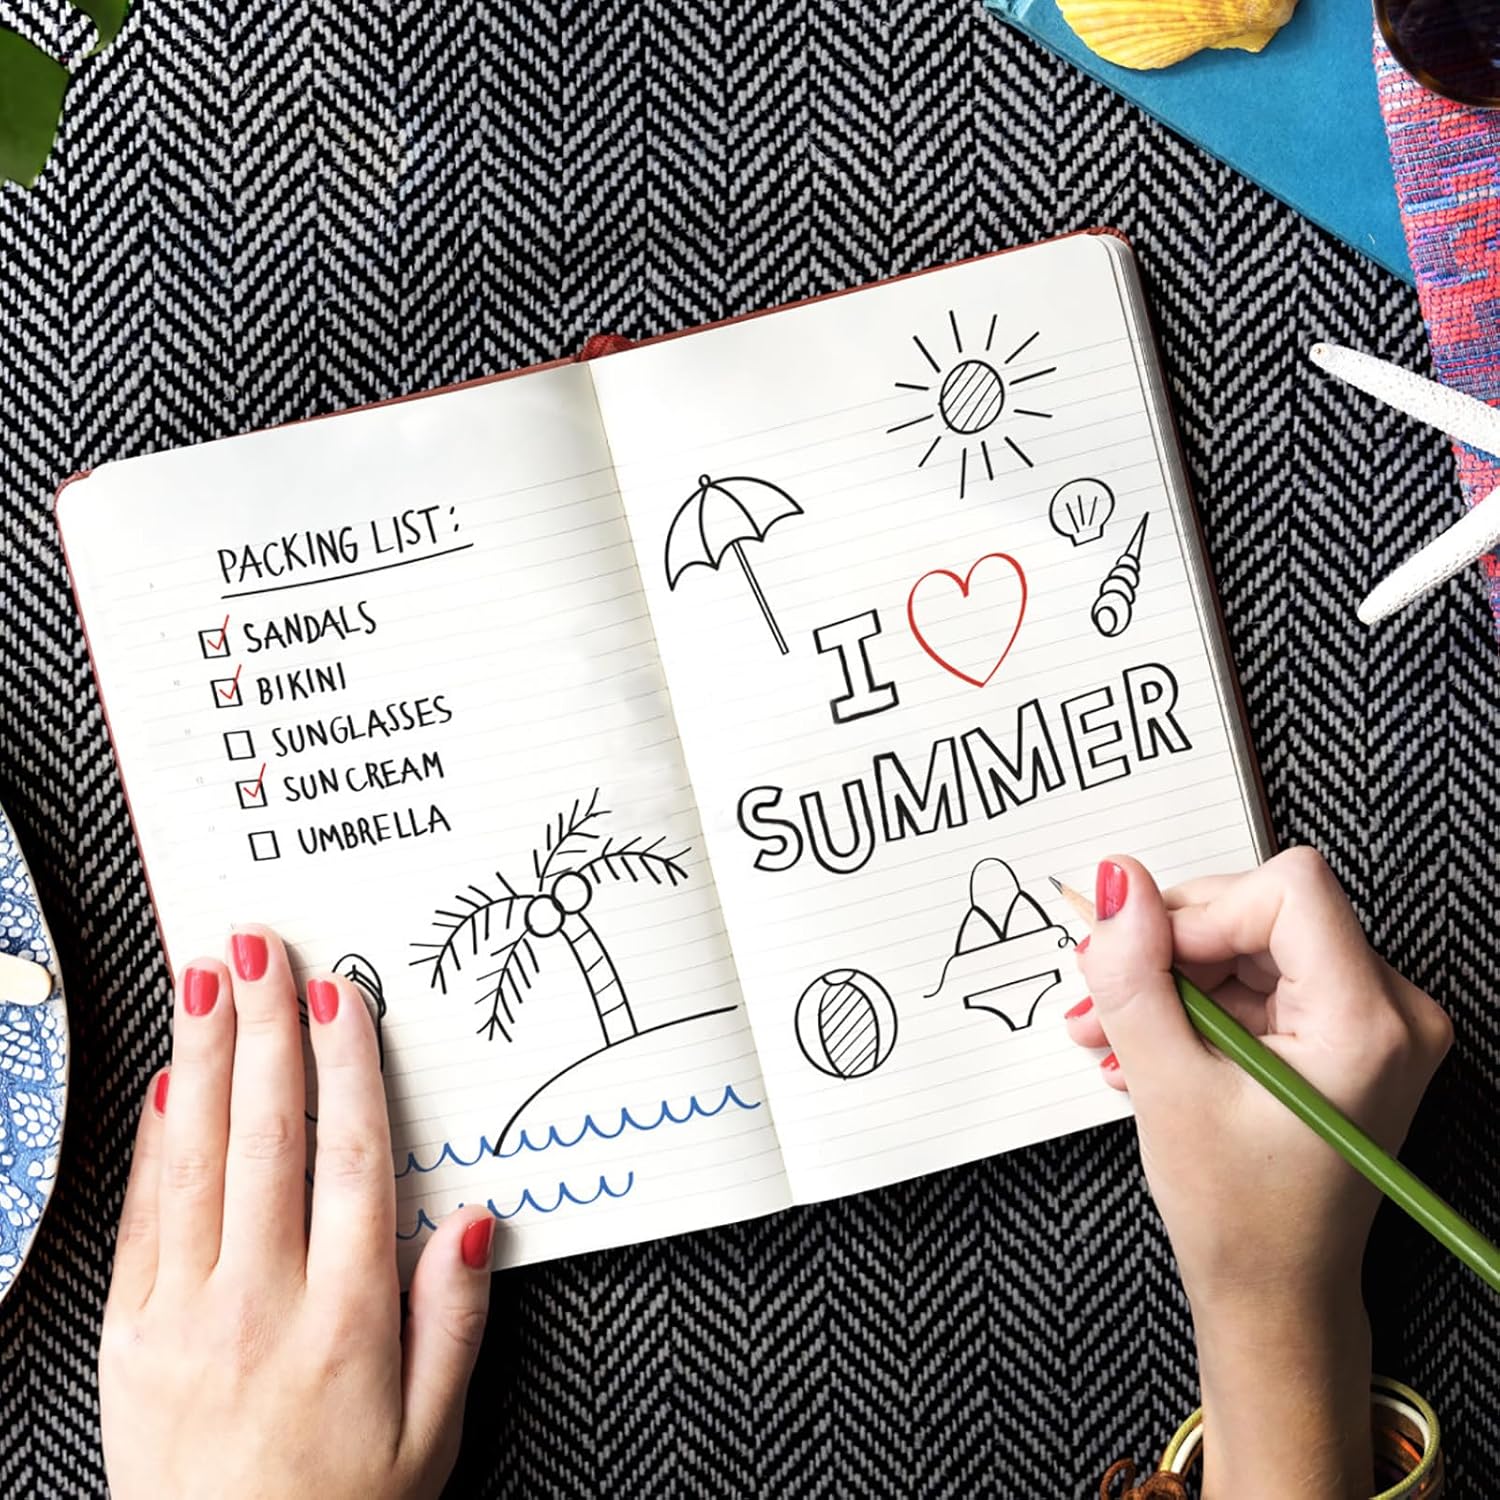 PACKING LIST:
SANDALS
BIKINI
SUNGLASSES
SUN CREAM
UMBRELLA
I
SUMMER